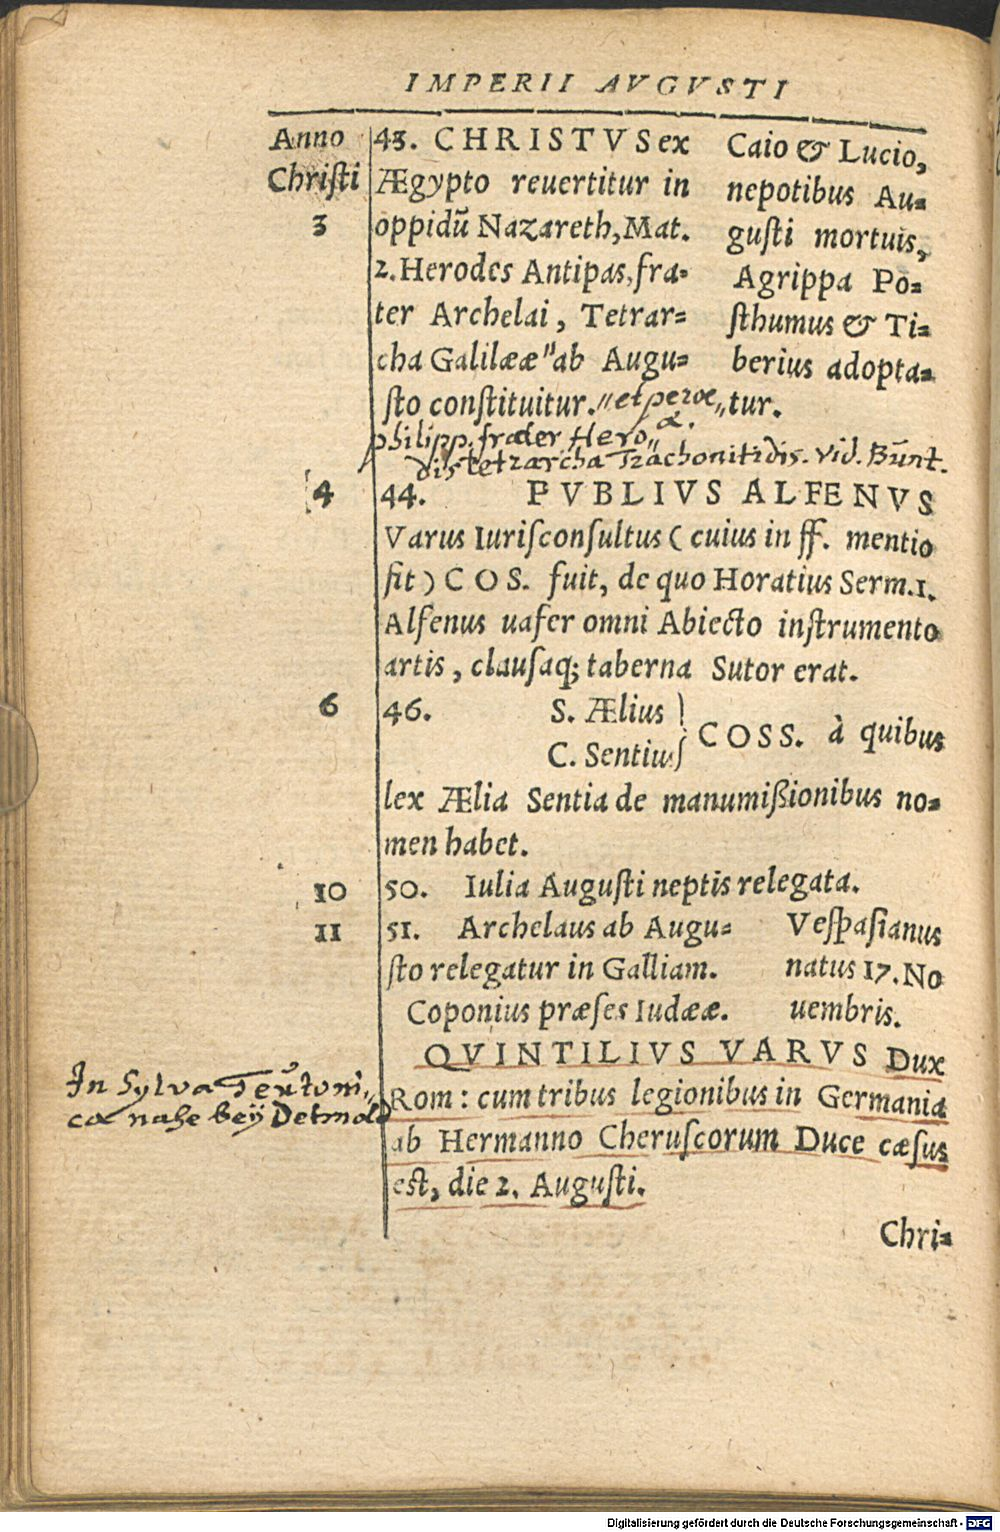 IMPERII AVGVSTI
Anno
Christi
3
43. CHRISTVS ex
Ægypto reuertitur in
oppidũ Nazareth, Mat.
2. Herodes Antipas, fra-
ter Archelai, Tetrar-
cha Galilææ ab Augu-
sto constituitur.
Caio & Lucio,
nepotibus Au-
gusti mortuis,
Agrippa Po-
sthumus & Ti-
berius adopta-
tur.
"et peræ„
æ.
philipp. frater Hero„
dis tetrarcha Trachonitidis. vid. Bũnt.
4
44. PVBLIVS ALFENVS
Varus Iurisconsultus (cuius in ff. mentio
fit) COS. fuit, de quo Horatius Serm.1.
Alfenus uafer omni Abiecto instrumento
artis, clausaq; taberna Sutor erat.
6
46. S. Ælius
C. Sentius
COSS. à quibus
lex Ælia Sentia de manumißionibus no-
men habet.
10
50. Iulia Augusti neptis relegata.
11
51. Archelaus ab Augu-
sto relegatur in Galliam.
Coponius præses Iudææ.
Vespasianus
natus 17. No
uembris.
QVINTILIVS VARVS Dux
Rom: cum tribus legionibus in Germania
ab Hermanno Cheruscorum Duce cæsus
est, die 2. Augusti.
In Sylva Teũtoni„
cæ nahe beÿ Detmold
Chri-
Digitalisierung gefördert durch die Deutsche Forschungsgemeinschaft - DFG